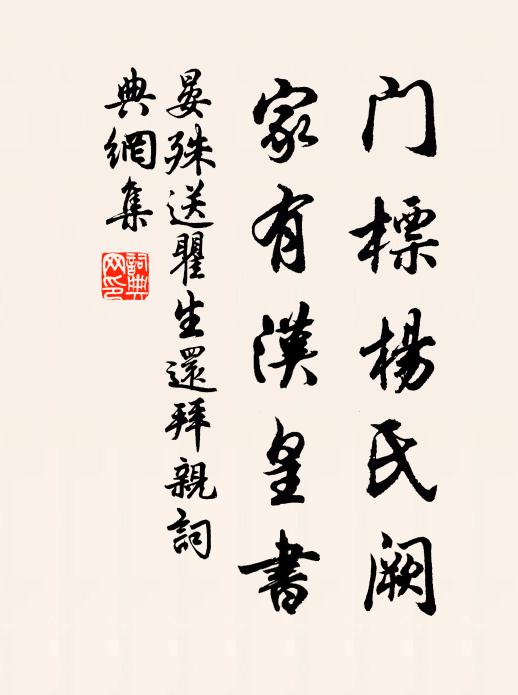 门標楊氏阙
家有漢皇書
晏殊送瞿生還拜親詞
典網集
詞典网印